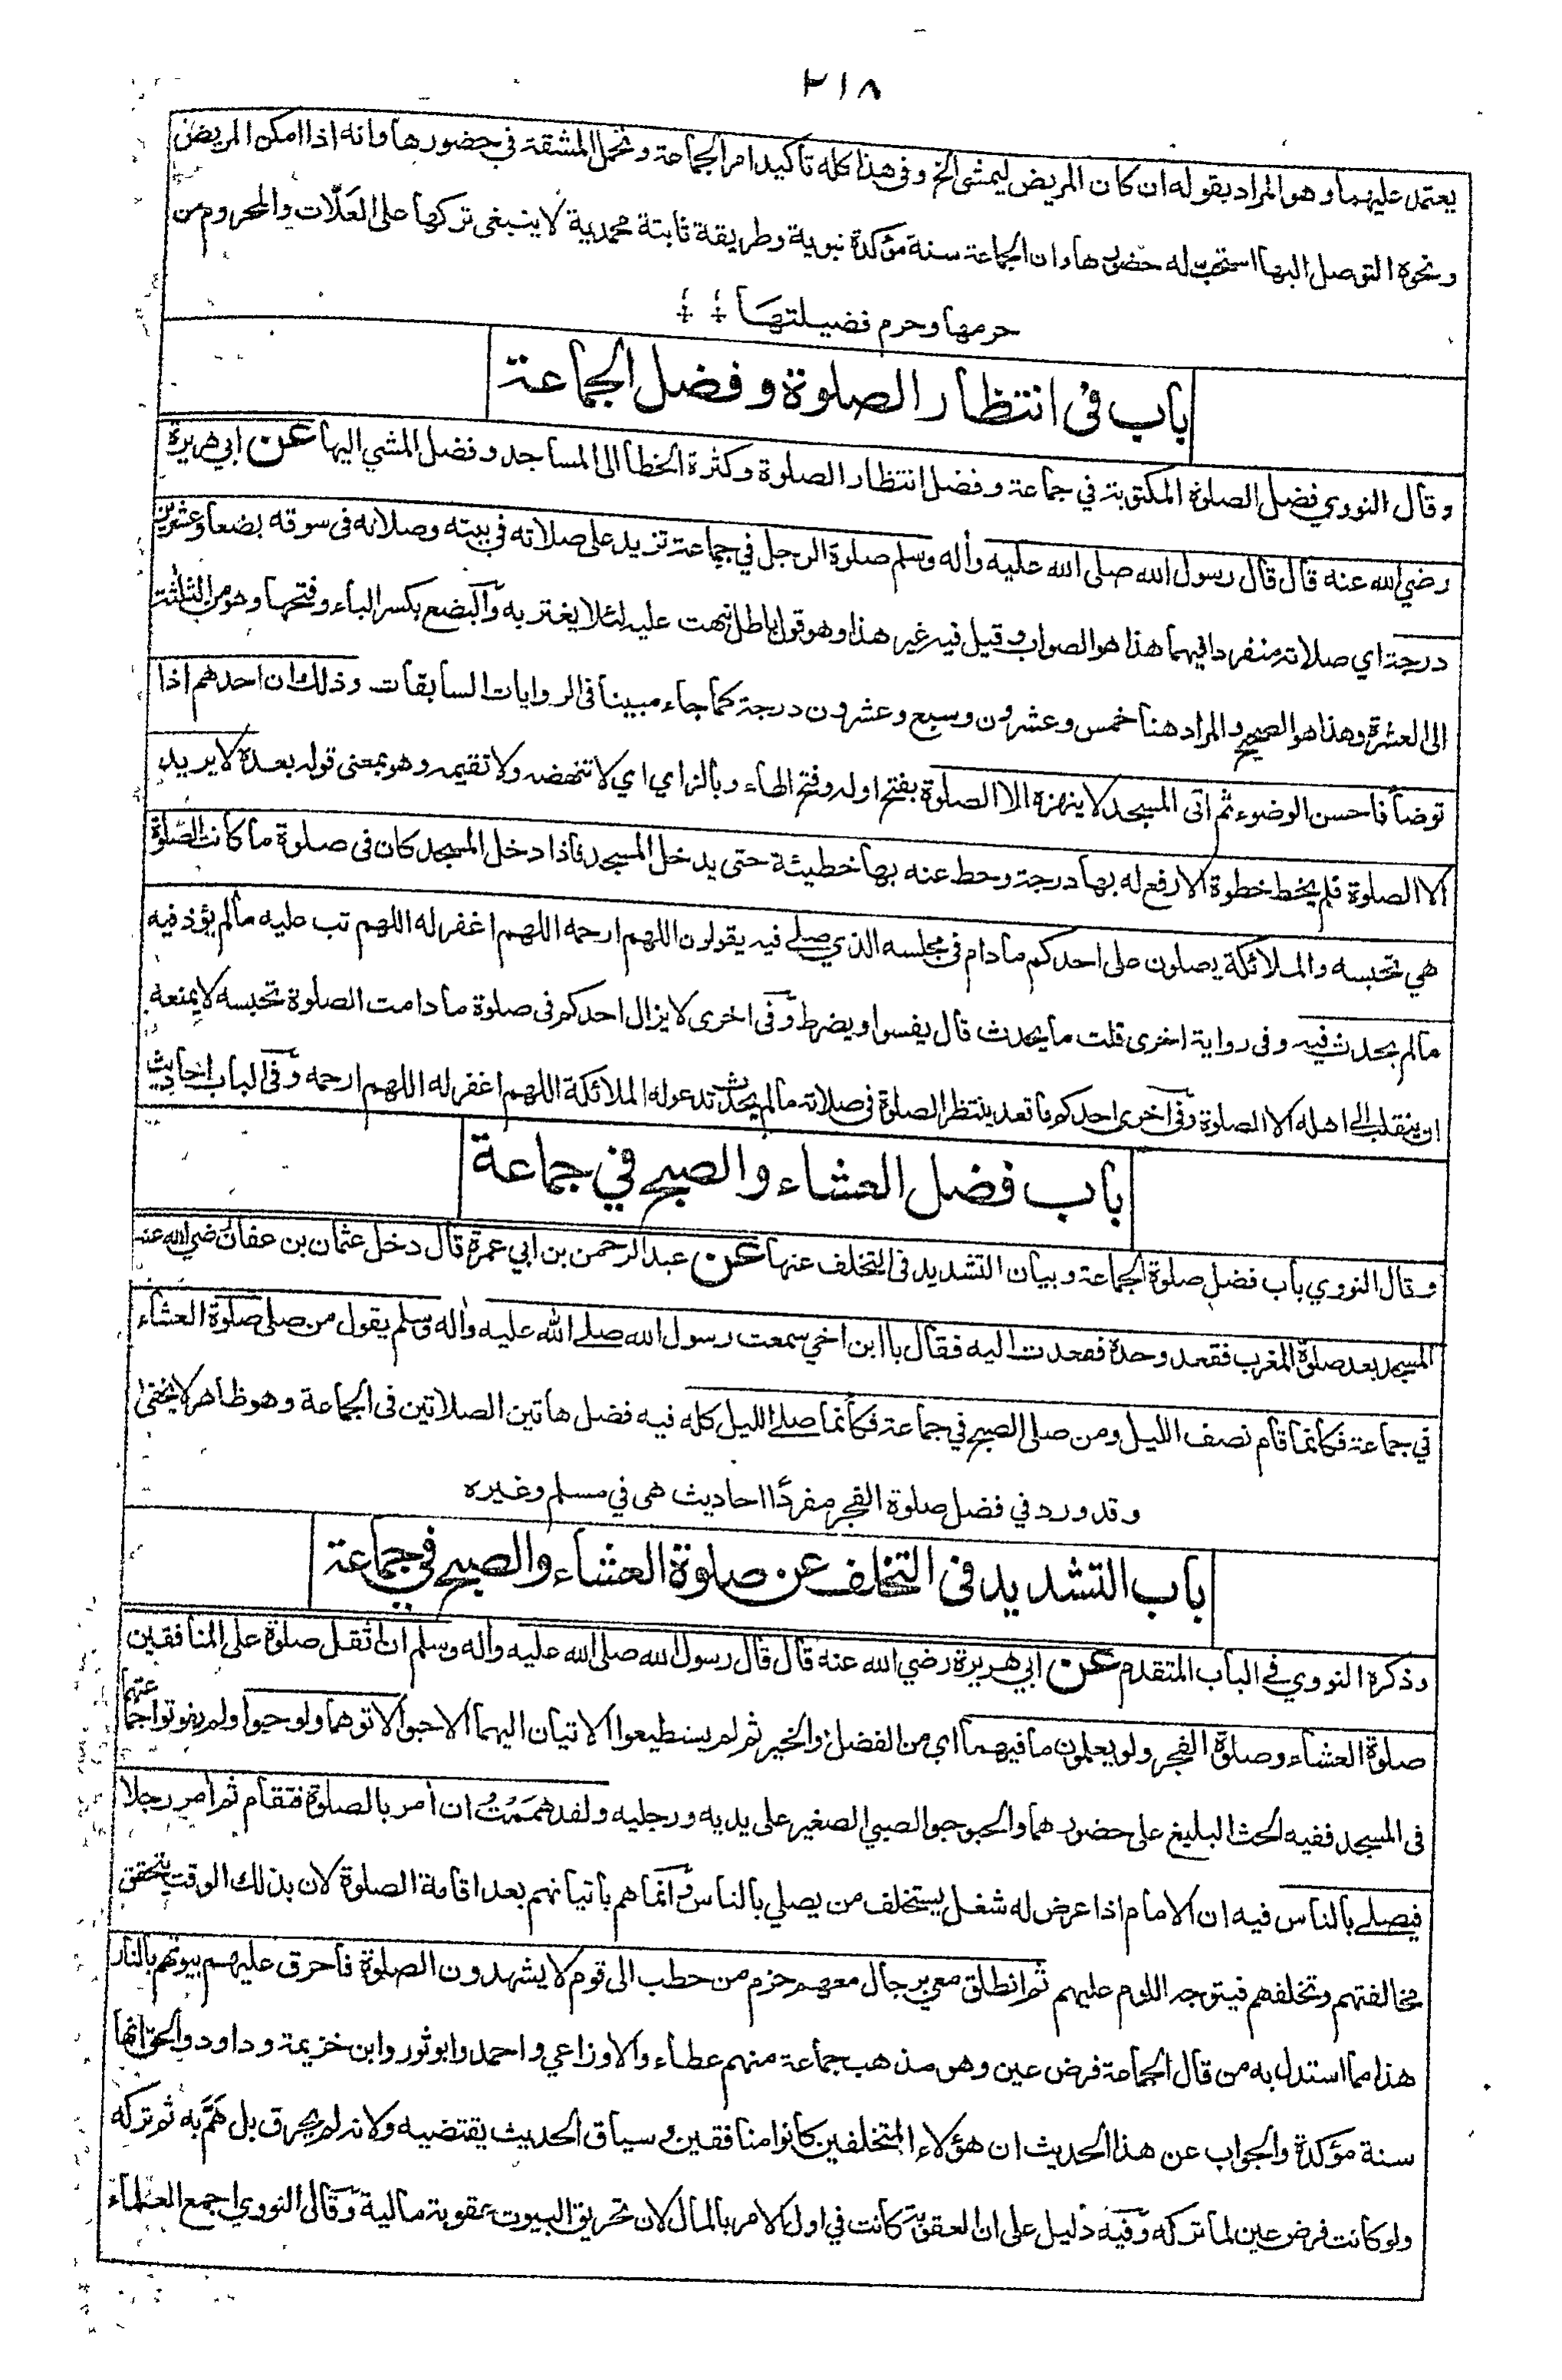 ٢١٨
يعتمد عليهما وهو المراد بقوله ان كان المريض ليمشي الخ وفي هذا كله تاكيد امر الجماعة وتحمل المشقة في حضورها وانه اذا امكن المريض
ونحوه التوصل اليها استحب له حضورها وان الجماعة سنة مؤكدة نبوية وطريقة ثابتة محمدية لا ينبغي تركها على العلّات والمحروم من
حرمها وحرم فضيلتها
باب في انتظار الصلوة وفضل الجماعة
وقال النووي فضل الصلوة المكتوبة في جماعة وفضل انتظار الصلوة وكثرة الخطا الى المساجد وفضل المشي اليها عن ابي هريرة
رضي الله عنه قال قال رسول الله صلى الله عليه وأله وسلم صلوة الرجل في جماعة تزيد على صلاته في بيته وصلاته في سوقه بضعا وعشرين
درجة اي صلاته منفردا فيهما هذا هو الصواب وقيل فيه غير هذا وهو قول باطل نبهت عليه لئلا يغتر به والبضع بكسر الباء وفتحها وهو من الثلثة
الى العشرة وهذا هو الصحيح والمراد هنا خمس وعشرون وسبع وعشرون درجة كما جاء مبينا في الروايات السابقات وذلك ان احدهم اذا
توضأ فاحسن الوضوء ثم اتى المسجد لا ينهزه الا الصلوة بفتح اوله وفتح الهاء وبالزاي اي لا تنهضه ولا تقيمه وهو بمعنى قوله بعده لا يريد
الا الصلوة فلم يخط خطوة الا رفع له بها درجة وحط عنه بها خطيئة حتى يدخل المسجد فاذا دخل المسجد كان في صلوة ما كانت الصلوة
هي تحبسه والملائكة يصلون على احدكم ما دام في مجلسه الذي صلى فيه يقولون اللهم ارحمه اللهم اغفر له اللهم تب عليه ما لم يؤذ فيه
ما لم يحدث فيه وفي رواية اخرى قلت ما يحدث قال يفسو او يضرط وفي اخرى لا يزال احدكم في صلوة ما دامت الصلوة تحبسه لا يمنعه
ان ينقلب الى اهله الا الصلوة وفي اخرى احدكم ما قعد ينتظر الصلوة في صلاته ما لم يحدث تدعو له الملائكة اللهم اغفر له اللهم ارحمه وفي الباب احاديث
باب فضل العشاء والصبح في جماعة
وقال النووي باب فضل صلوة الجماعة وبيان التشديد في التخلف عنها عن عبد الرحمن بن ابي عمرة قال دخل عثمان بن عفان رضي الله عنه
المسجد بعد صلوة المغرب فقعد وحده فقعدت اليه فقال يا ابن اخي سمعت رسول الله صلى الله عليه وأله وسلم يقول من صلى صلوة العشاء
في جماعة فكأنما قام نصف الليل ومن صلى الصبح في جماعة فكأنما صلى الليل كله فيه فضل هاتين الصلاتين في الجماعة وهو ظاهر لا يخفى
وقد ورد في فضل صلوة الفجر مفردًا احاديث هي في مسلم وغيره
باب التشديد في التخلف عن صلوة العشاء والصبح في جماعة
وذكره النووي في الباب المتقدم عن ابي هريرة رضي الله عنه قال قال رسول الله صلى الله عليه وأله وسلم ان اثقل صلوة على المنافقين
صلوة العشاء وصلوة الفجر ولو يعلمون ما فيهما اي من الفضل والخير ثم لم يستطيعوا الاتيان اليهما الا حبوا لاتوهما ولو حبوا ولم يفوتوا جماعتهم
في المسجد ففيه الحث البليغ على حضورهما والحبو حبو الصبي الصغير على يديه ورجليه ولقد هممت ان أمر بالصلوة فتقام ثم أمر رجلا
فيصلى بالناس فيه ان الامام اذا عرض له شغل يستخلف من يصلي بالناس وانما هم باتيانهم بعد اقامة الصلوة لان بذلك الوقت يتحقق
مخالفتهم وتخلفهم فيتوجه اللوم عليهم ثم انطلق معي برجال معهم حزم من حطب الى قوم لا يشهدون الصلوة فأحرق عليهم بيوتهم بالنار
هذا مما استدل به من قال الجماعة فرض عين وهو مذهب جماعة منهم عطاء والاوزاعي واحمد وابو ثور وابن خزيمة وداود والحق انها
سنة مؤكدة والجواب عن هذا الحديث ان هؤلاء المتخلفين كانوا منافقين وسياق الحديث يقتضيه ولانه لم يحرق بل هَمَّ به ثم تركه
ولو كانت فرض عين لما تركه وفيه دليل على ان العقوبة كانت في اول الامر بالمال لان تحريق البيوت عقوبة مالية وقال النووي اجمع العلماء